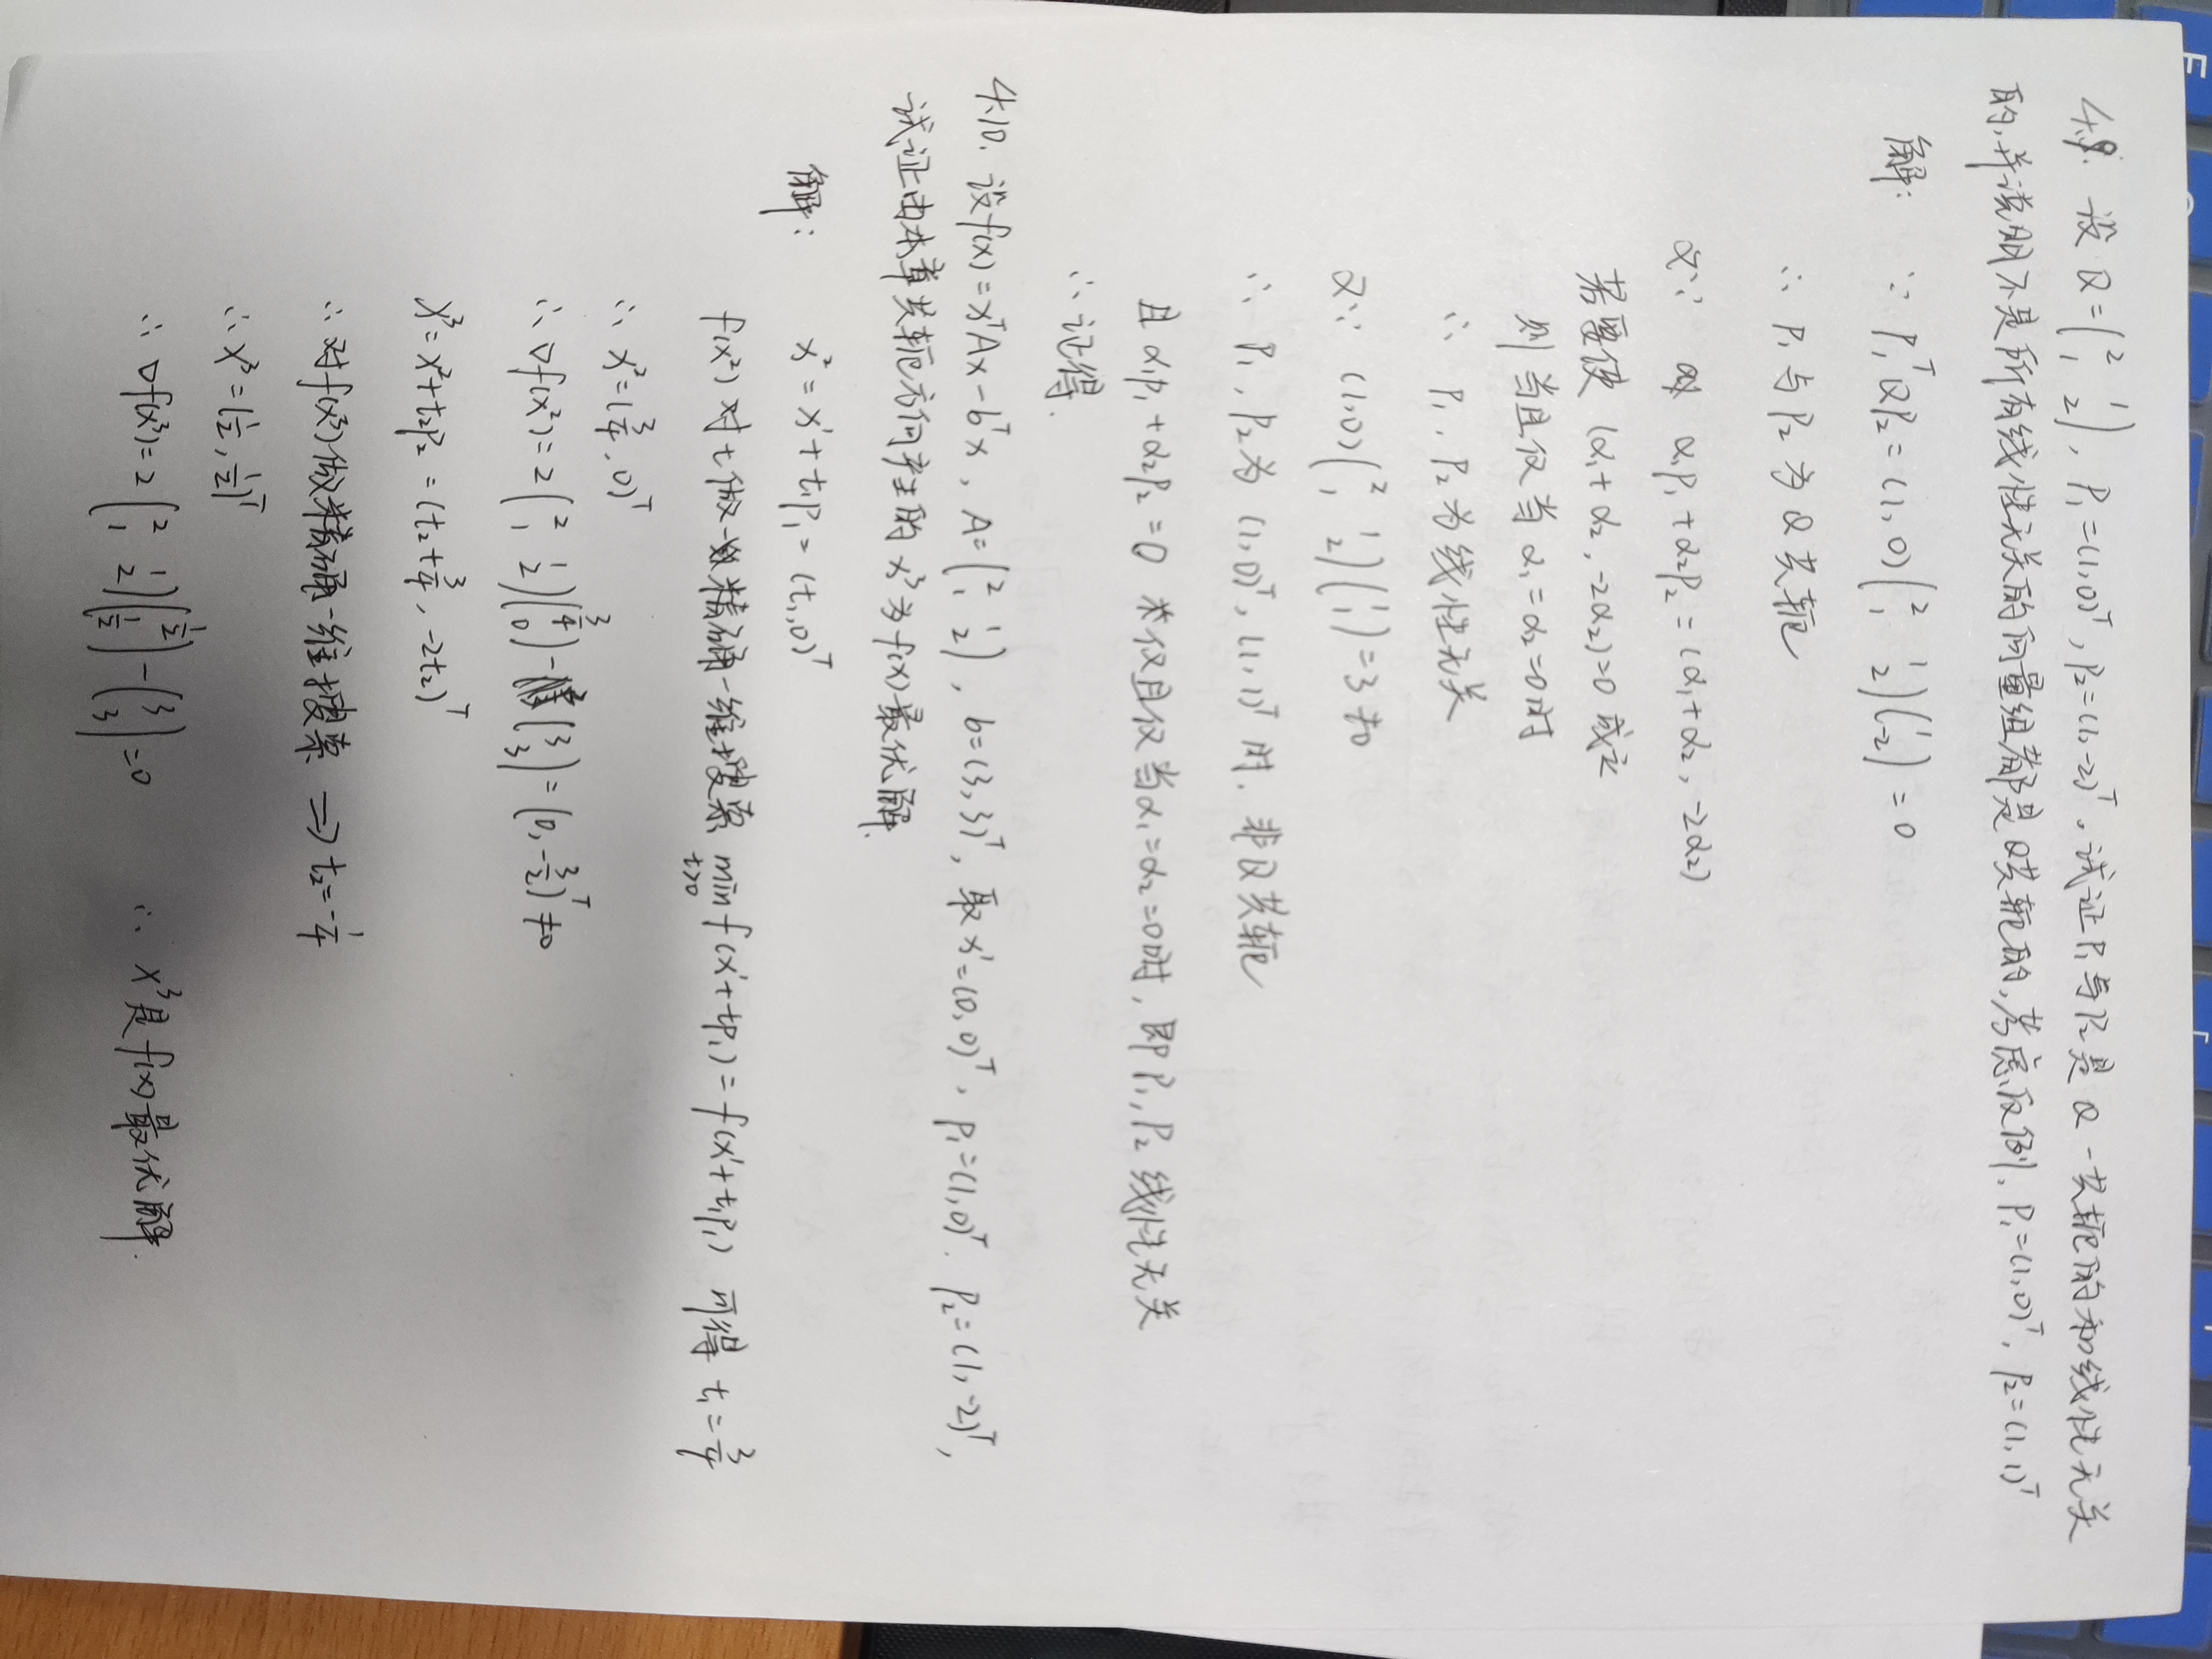 4.9. 设 Q = (2 1; 1 2), P₁=(1,0)ᵀ, P₂=(1,-2)ᵀ。试证P₁与P₂是 Q-共轭的和线性无关
的,并说明不是所有线性无关的向量组都是Q共轭的,考虑反例. P₁=(1,0)ᵀ, P₂=(1,1)ᵀ
解: ∵ P₁ᵀQP₂ = (1,0)(2 1; 1 2)(1; -2) = 0
∴ P₁与P₂为Q共轭
又∵ α₁P₁+α₂P₂=(α₁+α₂, -2α₂)
若要使 (α₁+α₂, -2α₂)=0 成立
则当且仅当 α₁=α₂=0时
∴ P₁, P₂为线性无关
又∵ (1,0)(2 1; 1 2)(1; 1)=3≠0
∴ P₁, P₂为 (1,0)ᵀ, (1,1)ᵀ 时. 非Q共轭
且 α₁P₁+α₂P₂=0 当仅且仅当α₁=α₂=0时, 即P₁,P₂ 线性无关
∴ 证得.
4.10. 设f(x)=xᵀAx-bᵀx, A=(2 1; 1 2), b=(3,3)ᵀ, 取x¹=(0,0)ᵀ, P₁=(1,0)ᵀ. P₂=(1,-2)ᵀ,
试证由本章共轭方向产生的 x³为f(x)最优解.
解: x²=x¹+t₁P₁=(t,0)ᵀ
f(x²)对t做精确一维搜索 min t>0 f(x¹+tP₁)=f(x¹+t₁P₁) 可得 t₁=3/4
∴ x²=(3/4,0)ᵀ
∴ ∇f(x²)=2(2 1; 1 2)(3/4; 0)-(3; 3)=(0,-3/2)ᵀ≠0
x³=x²+t₂P₂=(t₂+3/4, -2t₂)ᵀ
∴ 对f(x³)做精确一维搜索 ⇒ t₂=-1/4
∴ x³=(1/2, 1/2)ᵀ
∴ ∇f(x³)=2(2 1; 1 2)(1/2; 1/2)-(3; 3)=0 ∴ x³是f(x)最优解.